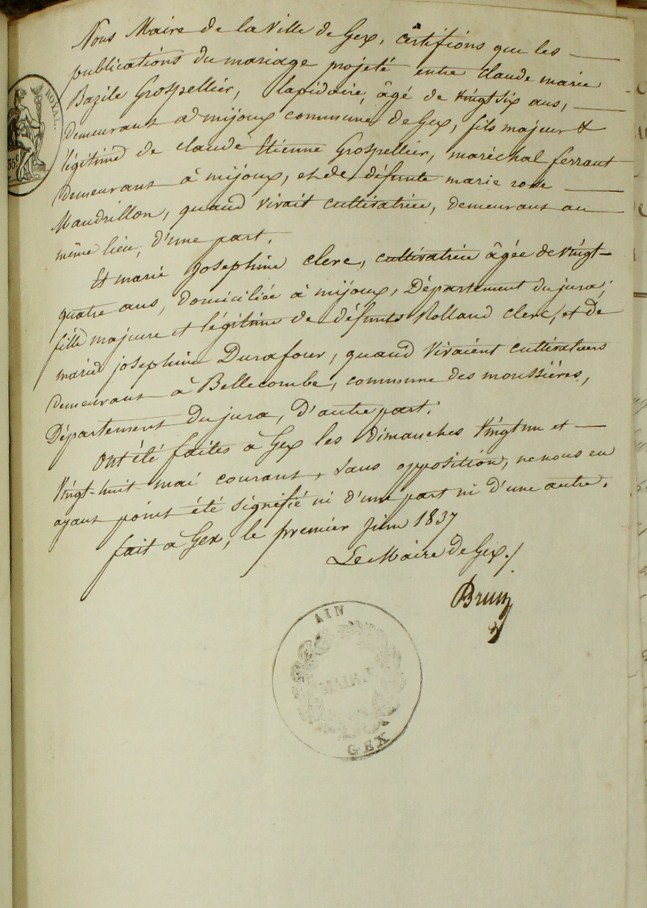 Nous Maire de la Ville de Gex, Certifions que les
publications du mariage projeté entre claude marie
Bazile Grospellier, lapidaire, âgé de vingt six ans,
demeurant à mijoux commune de Gex, fils majeur &
légitime de claude Etienne Grospellier, maréchal ferrant
demeurant à mijoux, et de défunte marie rose
Maudrillon, quand vivait cultivatrice, demeurant au
même lieu, d'une part.
Et marie josephine clerc, cultivatrice âgée de vingt-
quatre ans, domiciliée à mijoux, Département du jura,
fille majeure et légitime de défunts Rolland clerc, et de
marie josephine Durafour, quand vivaient cultivateurs
demeurant à Bellecombe, commune des moussières,
Département du jura, d'autre part.
Ont été faites à Gex les dimanches vingt un et
vingt-huit mai courant, sans opposition, ne nous en
ayant point été signifié ni d'une part ni d'une autre.
fait à Gex, le premier juin 1837
Le Maire de Gex.
ROYAL.
AIN
MAIRIE
GEX